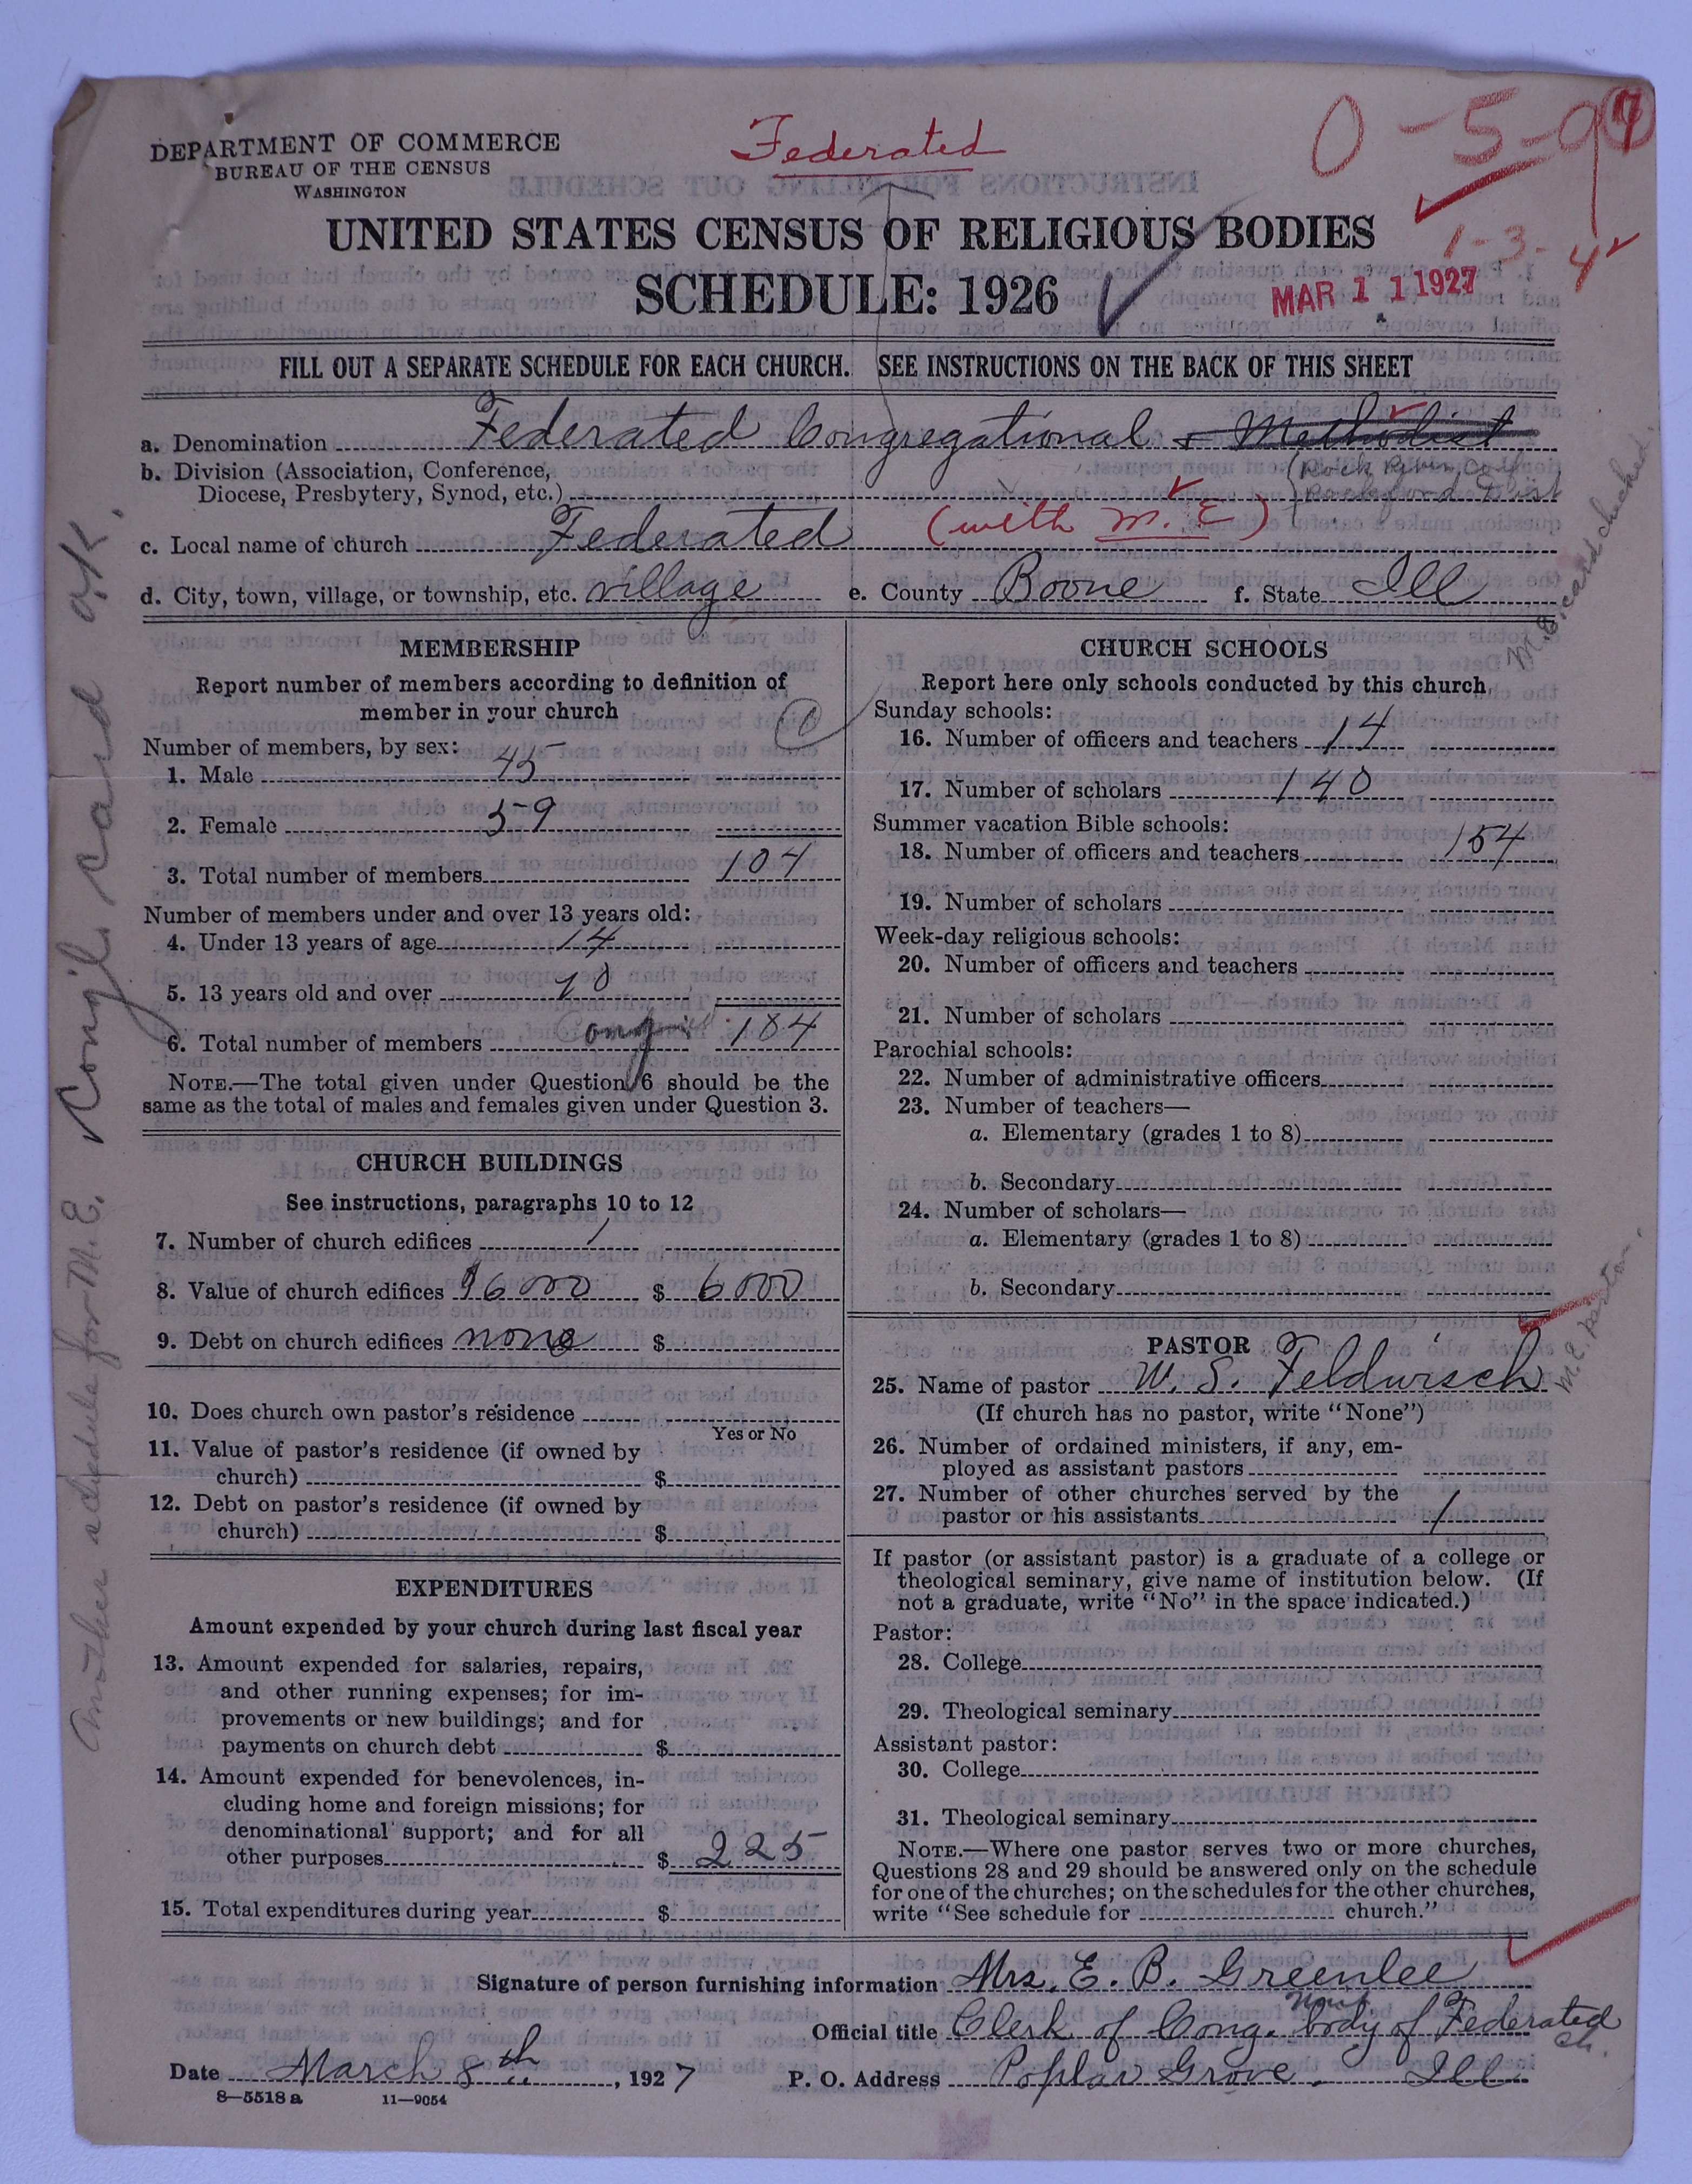 DEPARTMENT OF COMMERCE
BUREAU OF THE CENSUS
WASHINGTON
Federated
0-5-9
1-3-4
UNITED STATES CENSUS OF RELIGIOUS BODIES
SCHEDULE: 1926
MAR 11 1927
FILL OUT A SEPARATE SCHEDULE FOR EACH CHURCH. SEE INSTRUCTIONS ON THE BACK OF THIS SHEET
a. Denomination Federated Congregational & Methodist
b. Division (Association, Conference,
Diocese, Presbytery, Synod, etc.)
(Rock River Conf
Rockford Dist
c. Local name of church Federated (with M.E)
d. City, town, village, or township, etc. village e. County Boone f. State Ill
MEMBERSHIP
Report number of members according to definition of
member in your church
Number of members, by sex:
1. Male 45
2. Female 59
3. Total number of members 104
Number of members under and over 13 years old:
4. Under 13 years of age 14
5. 13 years old and over
6. Total number of members 104
NOTE.—The total given under Question 6 should be the
same as the total of males and females given under Question 3.
CHURCH BUILDINGS
See instructions, paragraphs 10 to 12
7. Number of church edifices 1
8. Value of church edifices $6000 $ 6000
9. Debt on church edifices none $
10. Does church own pastor's residence
Yes or No
11. Value of pastor's residence (if owned by
church) $
12. Debt on pastor's residence (if owned by
church) $
EXPENDITURES
Amount expended by your church during last fiscal year
13. Amount expended for salaries, repairs,
and other running expenses; for im-
provements or new buildings; and for
payments on church debt $
14. Amount expended for benevolences, in-
cluding home and foreign missions; for
denominational support; and for all
other purposes $ 225
15. Total expenditures during year $
CHURCH SCHOOLS
Report here only schools conducted by this church
Sunday schools:
16. Number of officers and teachers 14
17. Number of scholars 140
Summer vacation Bible schools:
18. Number of officers and teachers 154
19. Number of scholars
Week-day religious schools:
20. Number of officers and teachers
21. Number of scholars
Parochial schools:
22. Number of administrative officers
23. Number of teachers—
a. Elementary (grades 1 to 8)
b. Secondary
24. Number of scholars—
a. Elementary (grades 1 to 8)
b. Secondary
PASTOR
25. Name of pastor W. S. Feldwisch
(If church has no pastor, write "None")
26. Number of ordained ministers, if any, em-
ployed as assistant pastors
27. Number of other churches served by the
pastor or his assistants 1
If pastor (or assistant pastor) is a graduate of a college or
theological seminary, give name of institution below. (If
not a graduate, write "No" in the space indicated.)
Pastor:
28. College
29. Theological seminary
Assistant pastor:
30. College
31. Theological seminary
NOTE.—Where one pastor serves two or more churches,
Questions 28 and 29 should be answered only on the schedule
for one of the churches; on the schedules for the other churches,
write "See schedule for church."
Signature of person furnishing information Mrs. E. B. Greenlee
Official title Clerk of Cong. body of Federated
Ch.
Date March 8th, 1927 P. O. Address Poplar Grove. Ill
8—5518 a 11—9054
Another schedule for M.E. Cong'l. Card O.K.
M.E. card checked.
M.E. Pastor.